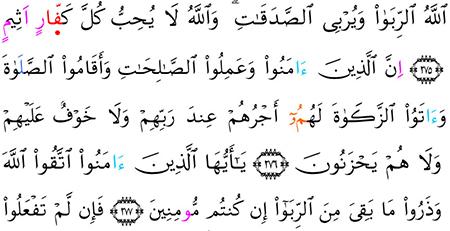 اَللَّهُ اُلرِّبَوٰاْ وَيُرْبِى اِلصَّدَقَـٰتِۗ وَاللَّهُ لَا يُحِبُّ كُلَّ كَفَّارٍ اَثِيمٍ
٢٧٥ إِنَّ اَلَّذِينَ ءَامَنُواْ وَعَمِلُواْ اُلصَّـٰلِحَـٰتِ وَأَقَامُواْ اُلصَّلَوٰةَ
وَءَاتَوُاْ اُلزَّكَوٰةَ لَهُمُۥٓ أَجْرُهُمْ عِندَ رَبِّهِمْ وَلَا خَوْفٌ عَلَيْهِمْ
وَلَا هُمْ يَحْزَنُونَ ٢٧٦ يَـٰٓأَيُّهَا اَلَّذِينَ ءَامَنُواْ اُتَّقُواْ اُللَّهَ
وَذَرُواْ مَا بَقِىَ مِنَ اَلرِّبَوٰٓاْ إِن كُنتُم مُّومِنِينَ ٢٧٧ فَإِن لَّمْ تَفْعَلُواْ